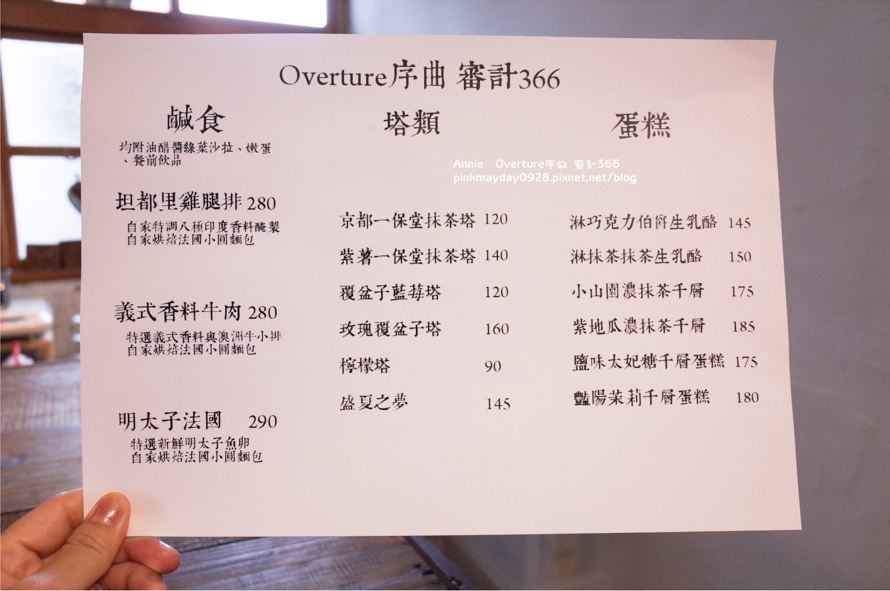 Overture序曲 審計366
鹹食
均附油醋醬綠菜沙拉、嫩蛋
、餐前飲品
坦都里雞腿排 280
自家特調八種印度香料醃製
自家烘焙法國小圓麵包
義式香料牛肉 280
特選義式香料與澳洲牛小排
自家烘焙法國小圓麵包
明太子法國 290
特選新鮮明太子魚卵
自家烘焙法國小圓麵包
塔類
京都一保堂抹茶塔 120
紫薯一保堂抹茶塔 140
覆盆子藍莓塔 120
玫瑰覆盆子塔 160
檸檬塔 90
盛夏之夢 145
蛋糕
淋巧克力伯爵生乳酪 145
淋抹茶抹茶生乳酪 150
小山園濃抹茶千層 175
紫地瓜濃抹茶千層 185
鹽味太妃糖千層蛋糕 175
豔陽茉莉千層蛋糕 180
Annie Overture序曲 審計366
pinkmayday0928.pixnet.net/blog